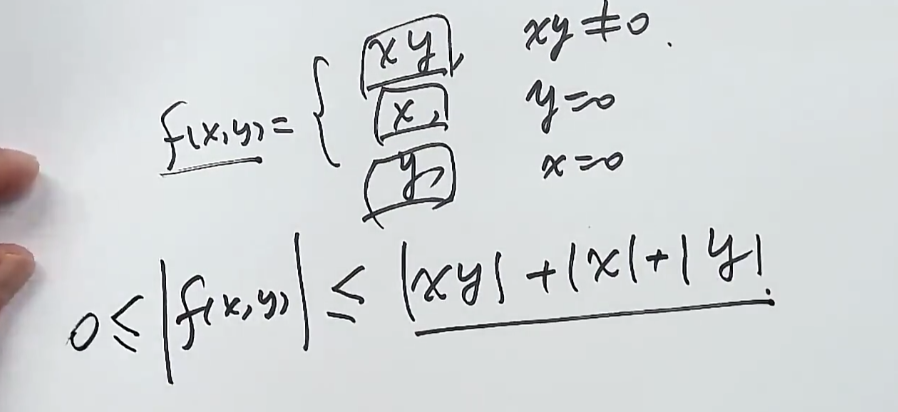 f(x,y) = { xy, xy ≠ 0.
x, y=0
y, x=0
0 ≤ |f(x,y)| ≤ |xy| + |x| + |y|.